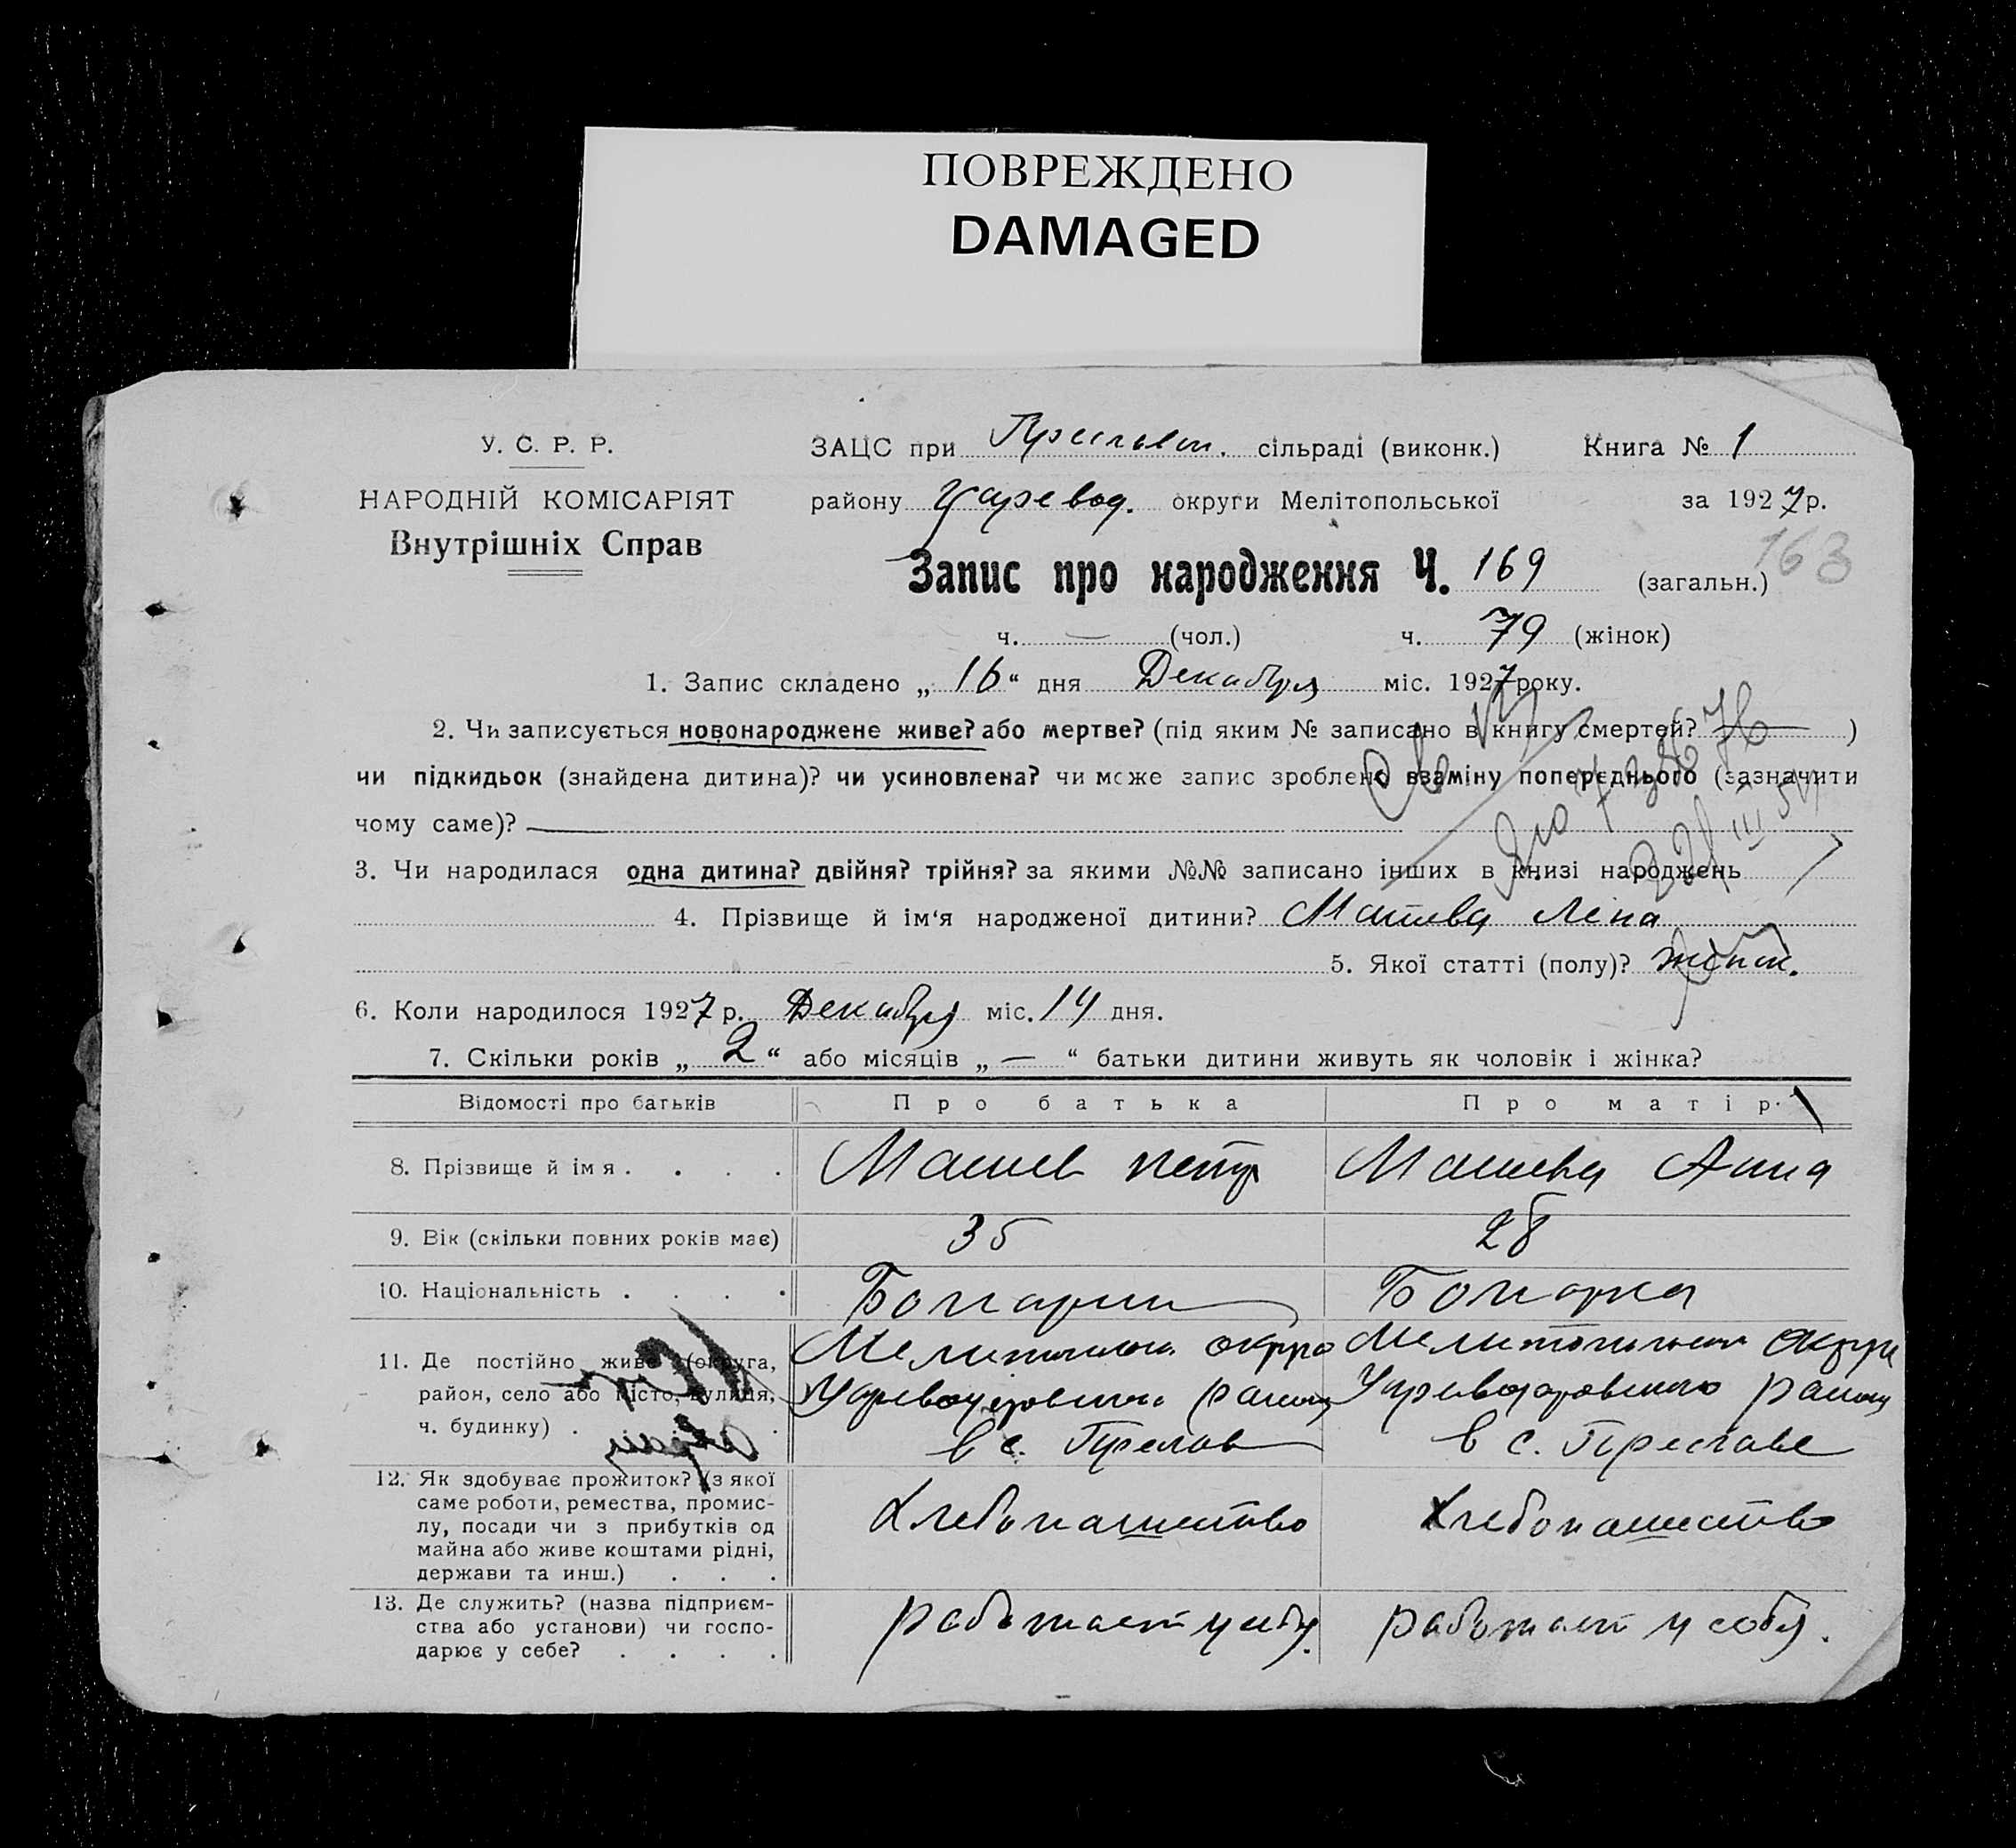 ПОВРЕЖДЕНО
DAMAGED
У. С. Р. Р.
НАРОДНІЙ КОМІСАРІЯТ
Внутрішніх Справ
ЗАЦС при Преславск. сільраді (виконк.) Книга № 1
району Царевод. округи Мелітопольської за 1927 р.
Запис про народження Ч. 169 (загальн.) 163
ч. — (чол.) ч. 79 (жінок)
1. Запис складено „ 16 “ дня Декабря міс. 1927 року.
2. Чи записується новонароджене живе? або мертве? (під яким № записано в книгу смертей? — )
чи підкидьок (знайдена дитина)? чи усиновлена? чи може запис зроблено взаміну попереднього (зазначити
чому саме)? —
3. Чи народилася одна дитина? двійня? трійня? за якими №№ записано інших в книзі народжень
4. Прізвище й ім‘я народженої дитини? Лена
5. Якої статті (полу)?
6. Коли народилося 1927 р. Декабря міс. 14 дня.
7. Скільки років „ 2 “ або місяців „ — “ батьки дитини живуть як чоловік і жінка?
Відомості про батьків Про батька Про матір
8. Прізвище й імя . . . . Петр Анна
9. Вік (скільки повних років має) 35 28
10. Національність . . . . Болгарин Болгарка
11. Де постійно живе (округа, Мелитопольск. округа Мелитопольск. округа
район, село або місто, вулиця, Цареводаровского района Цареводаровского района
ч. будинку) . . в с. Преслав в с. Преславе
12. Як здобуває прожиток? (з якої
саме роботи, ремества, промис-
лу, посади чи з прибутків од Хлебопашество Хлебопашество
майна або живе коштами рідні,
держави та инш.) . . .
13. Де служить? (назва підприєм-
ства або установи) чи госпо- работает у себя. работает у себя.
дарює у себе? . . . .